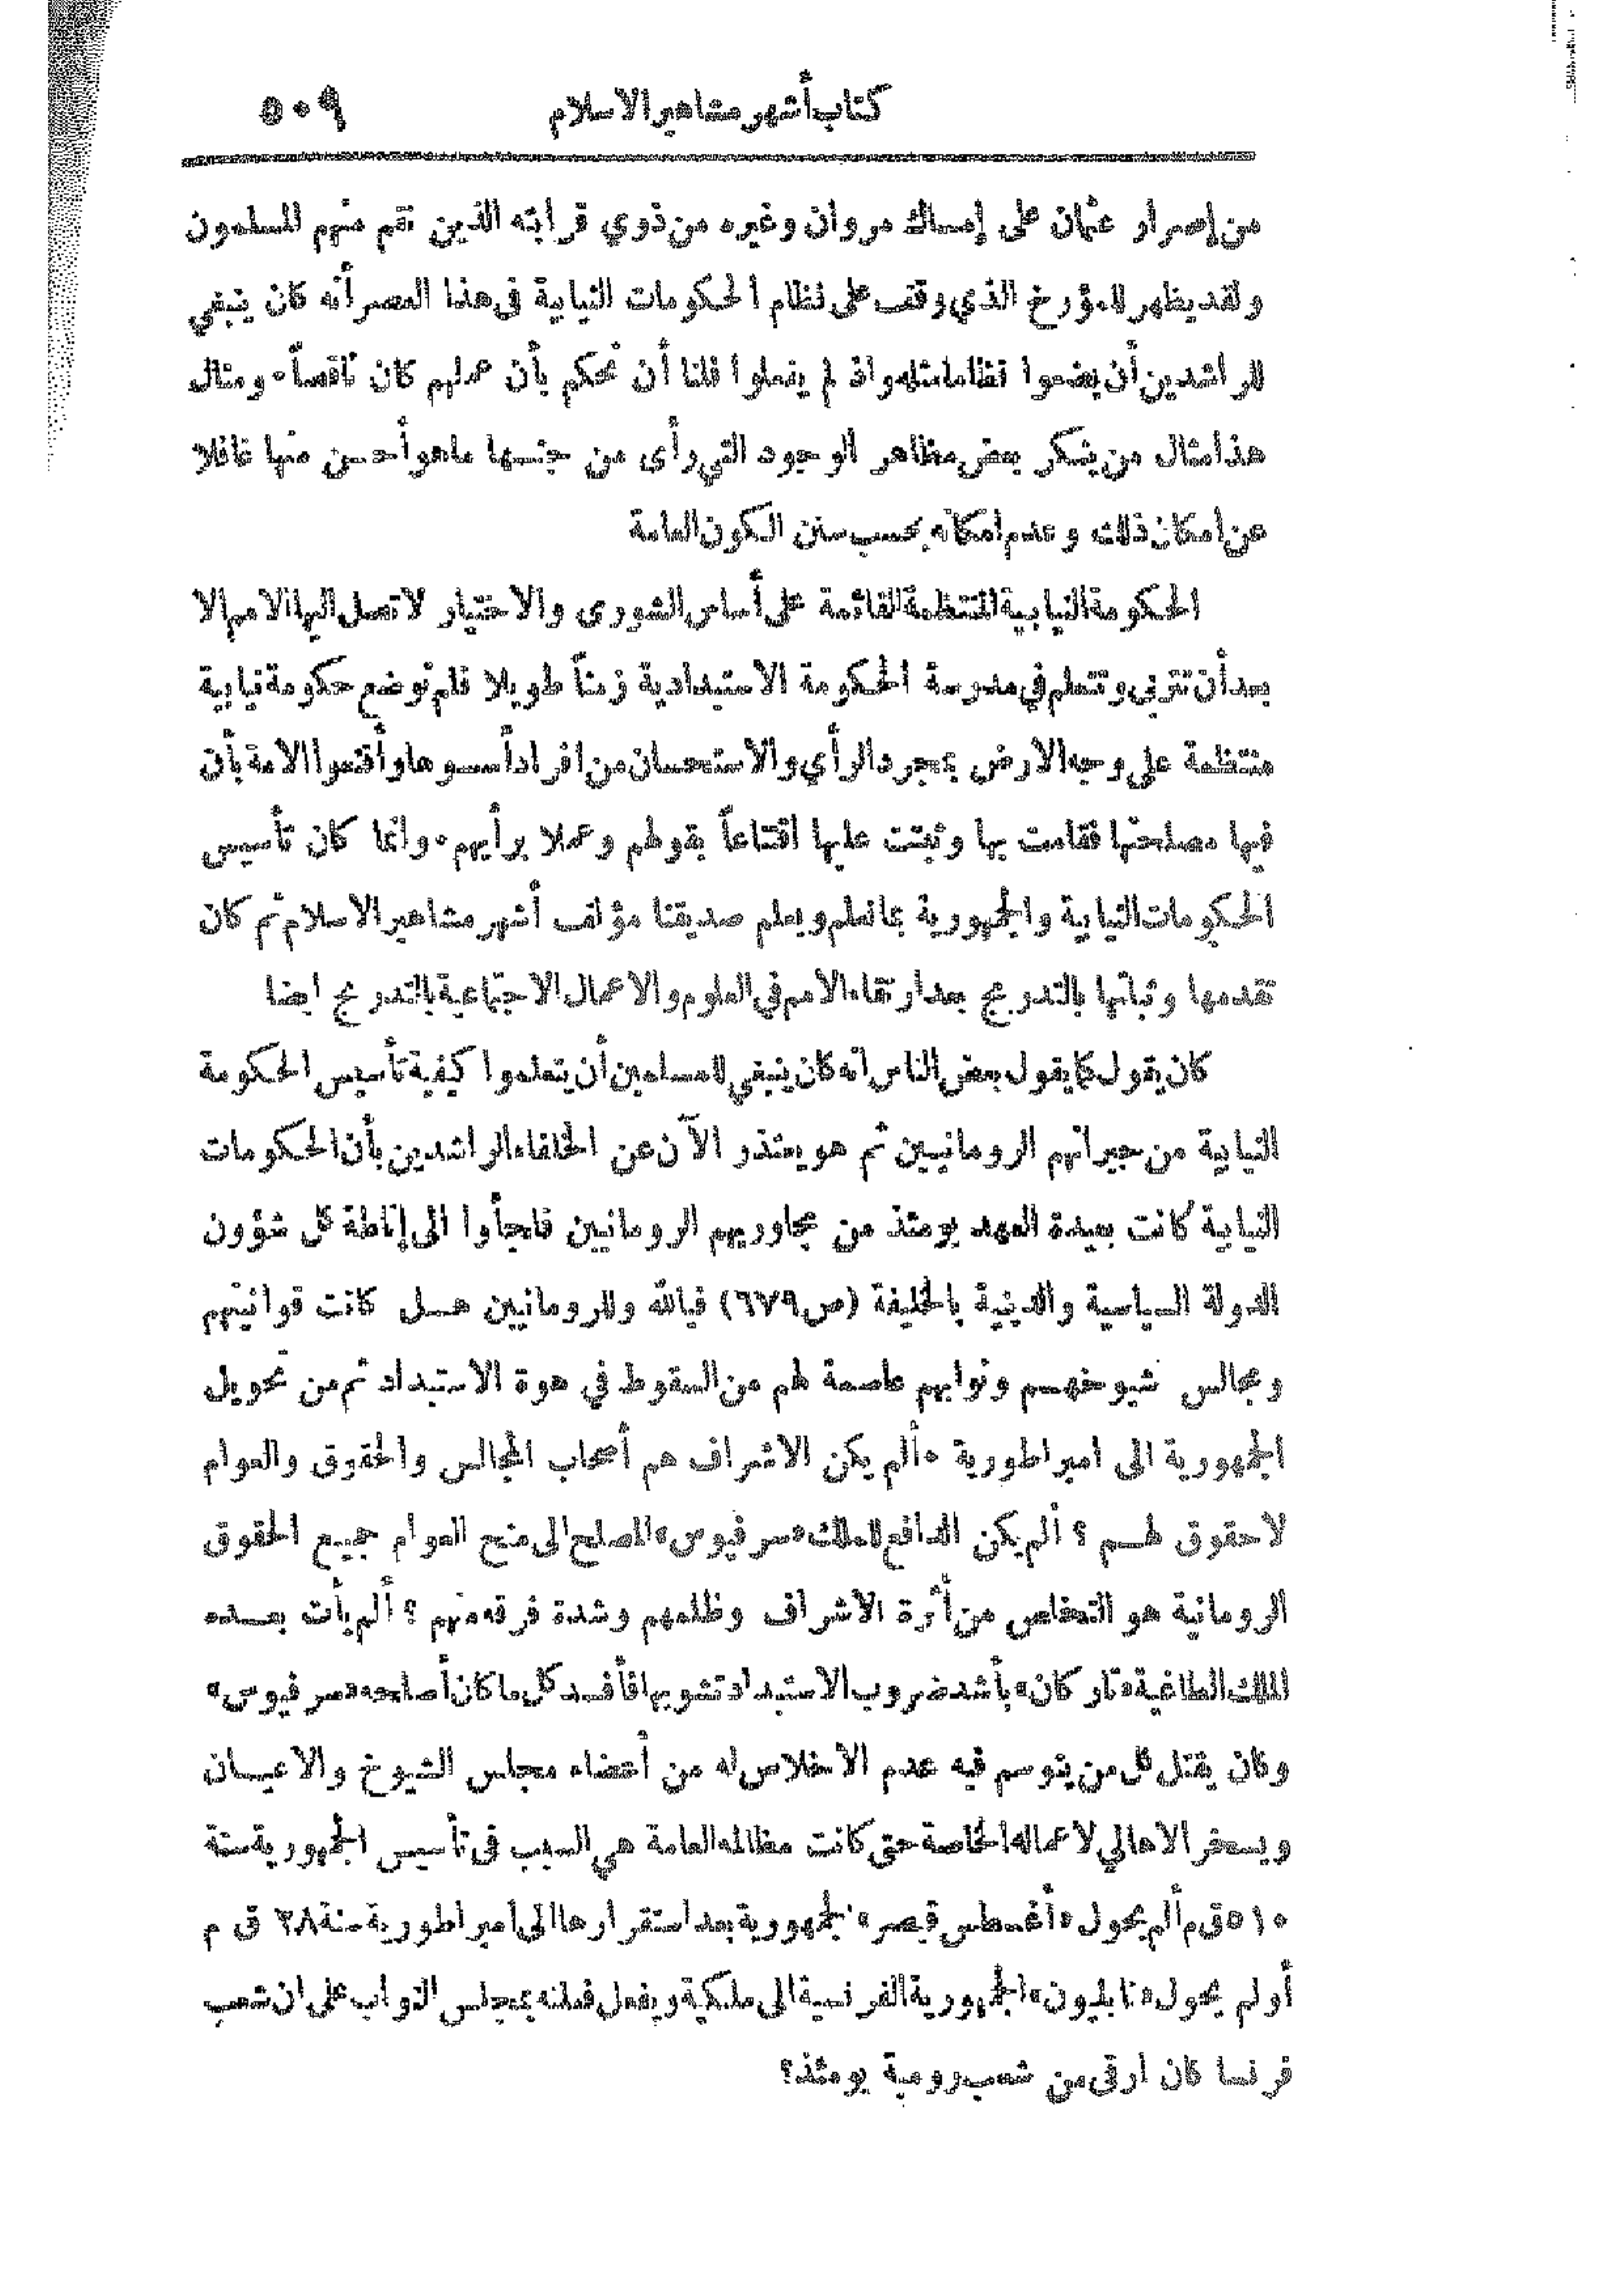 كتاب أشهر مشاهير الاسلام ٥٠٩
من إصرار عثمان على إمساك مروان وغيره من ذوي قرابته الذين نقم منهم المسلمون
ولقد يظهر للمؤرخ الذي وقف على نظام الحكومات النيابية في هذا العصر أنه كان ينبغي
للراشدين أن يضعوا نظاما مثله واذ لم يفعلوا فلنا أن نحكم بأن عملهم كان ناقصاً. ومثال
هذا مثال من ينكر بعض مظاهر الوجود التي رأى من جنسها ما هو أحسن منها غافلا
عن امكان ذلك وعدم امكانه بحسب سنن الكون العامة
الحكومة النيابية المنتظمة القائمة على أساس الشورى والاختيار لا تصل اليها الامم إلا
بعد أن تتربى وتتعلم في مدرسة الحكومة الاستبدادية زمناً طويلا فلم توضع حكومة نيابية
منتظمة على وجه الارض بمجرد الرأي والاستحسان من افراد أسسوها وأقنعوا الامة بأن
فيها مصلحتها فقامت بها وثبتت عليها اقتناعاً بقولهم وعملا برأيهم. وانما كان تأسيس
الحكومات النيابية والجمهورية بما نعلم ويعلم صديقنا مؤلف أشهر مشاهير الاسلام ثم كان
تقدمها وثباتها بالتدريج بعد ارتقاء الامم في العلوم والاعمال الاجتماعية بالتدريج ايضا
كان يقول كما يقول بعض الناس انه كان ينبغي للمسلمين أن يتعلموا كيفية تأسيس الحكومة
النيابية من جيرانهم الرومانيين ثم هو يعتذر الآن عن الخلفاء الراشدين بأن الحكومات
النيابية كانت بعيدة العهد يومئذ من مجاوريهم الرومانيين فلجأوا الى إناطة كل شؤون
الدولة السياسية والدينية بالخليفة (ص٦٧٩) فيالله وللرومانيين هل كانت قوانينهم
ومجالس شيوخهم ونوابهم عاصمة لهم من السقوط في هوة الاستبداد ثم من تحويل
الجمهورية الى امبراطورية . ألم يكن الاشراف هم أصحاب المجالس والحقوق والعوام
لا حقوق لهم ؟ ألم يكن الدافع للملك «سرفيوس» المصلح الى منح العوام جميع الحقوق
الرومانية هو التخلص من أثرة الاشراف وظلمهم وشدة فرقه منهم ؟ ألم يأت بعده
الملك الطاغية «تاركان» بأشد ضروب الاستبداد تشويها فأفسد كل ما كان أصلحه «سرفيوس»
وكان يقتل كل من يتوسم فيه عدم الاخلاص له من أعضاء مجلس الشيوخ والاعيان
ويسخر الاهالي لاعماله الخاصة حتى كانت مظالمه العامة هي السبب في تأسيس الجمهورية سنة
٥١٠ ق م ألم يحول «أغسطس قيصر» الجمهورية بعد استقرارها الى امبراطورية سنة ٢٨ ق م
أولم يحول «نابليون» الجمهورية الفرنسية الى ملكية ويفعل فعلته بمجلس النواب على ان شعب
فرنسا كان ارقى من شعب رومية يومئذ؟